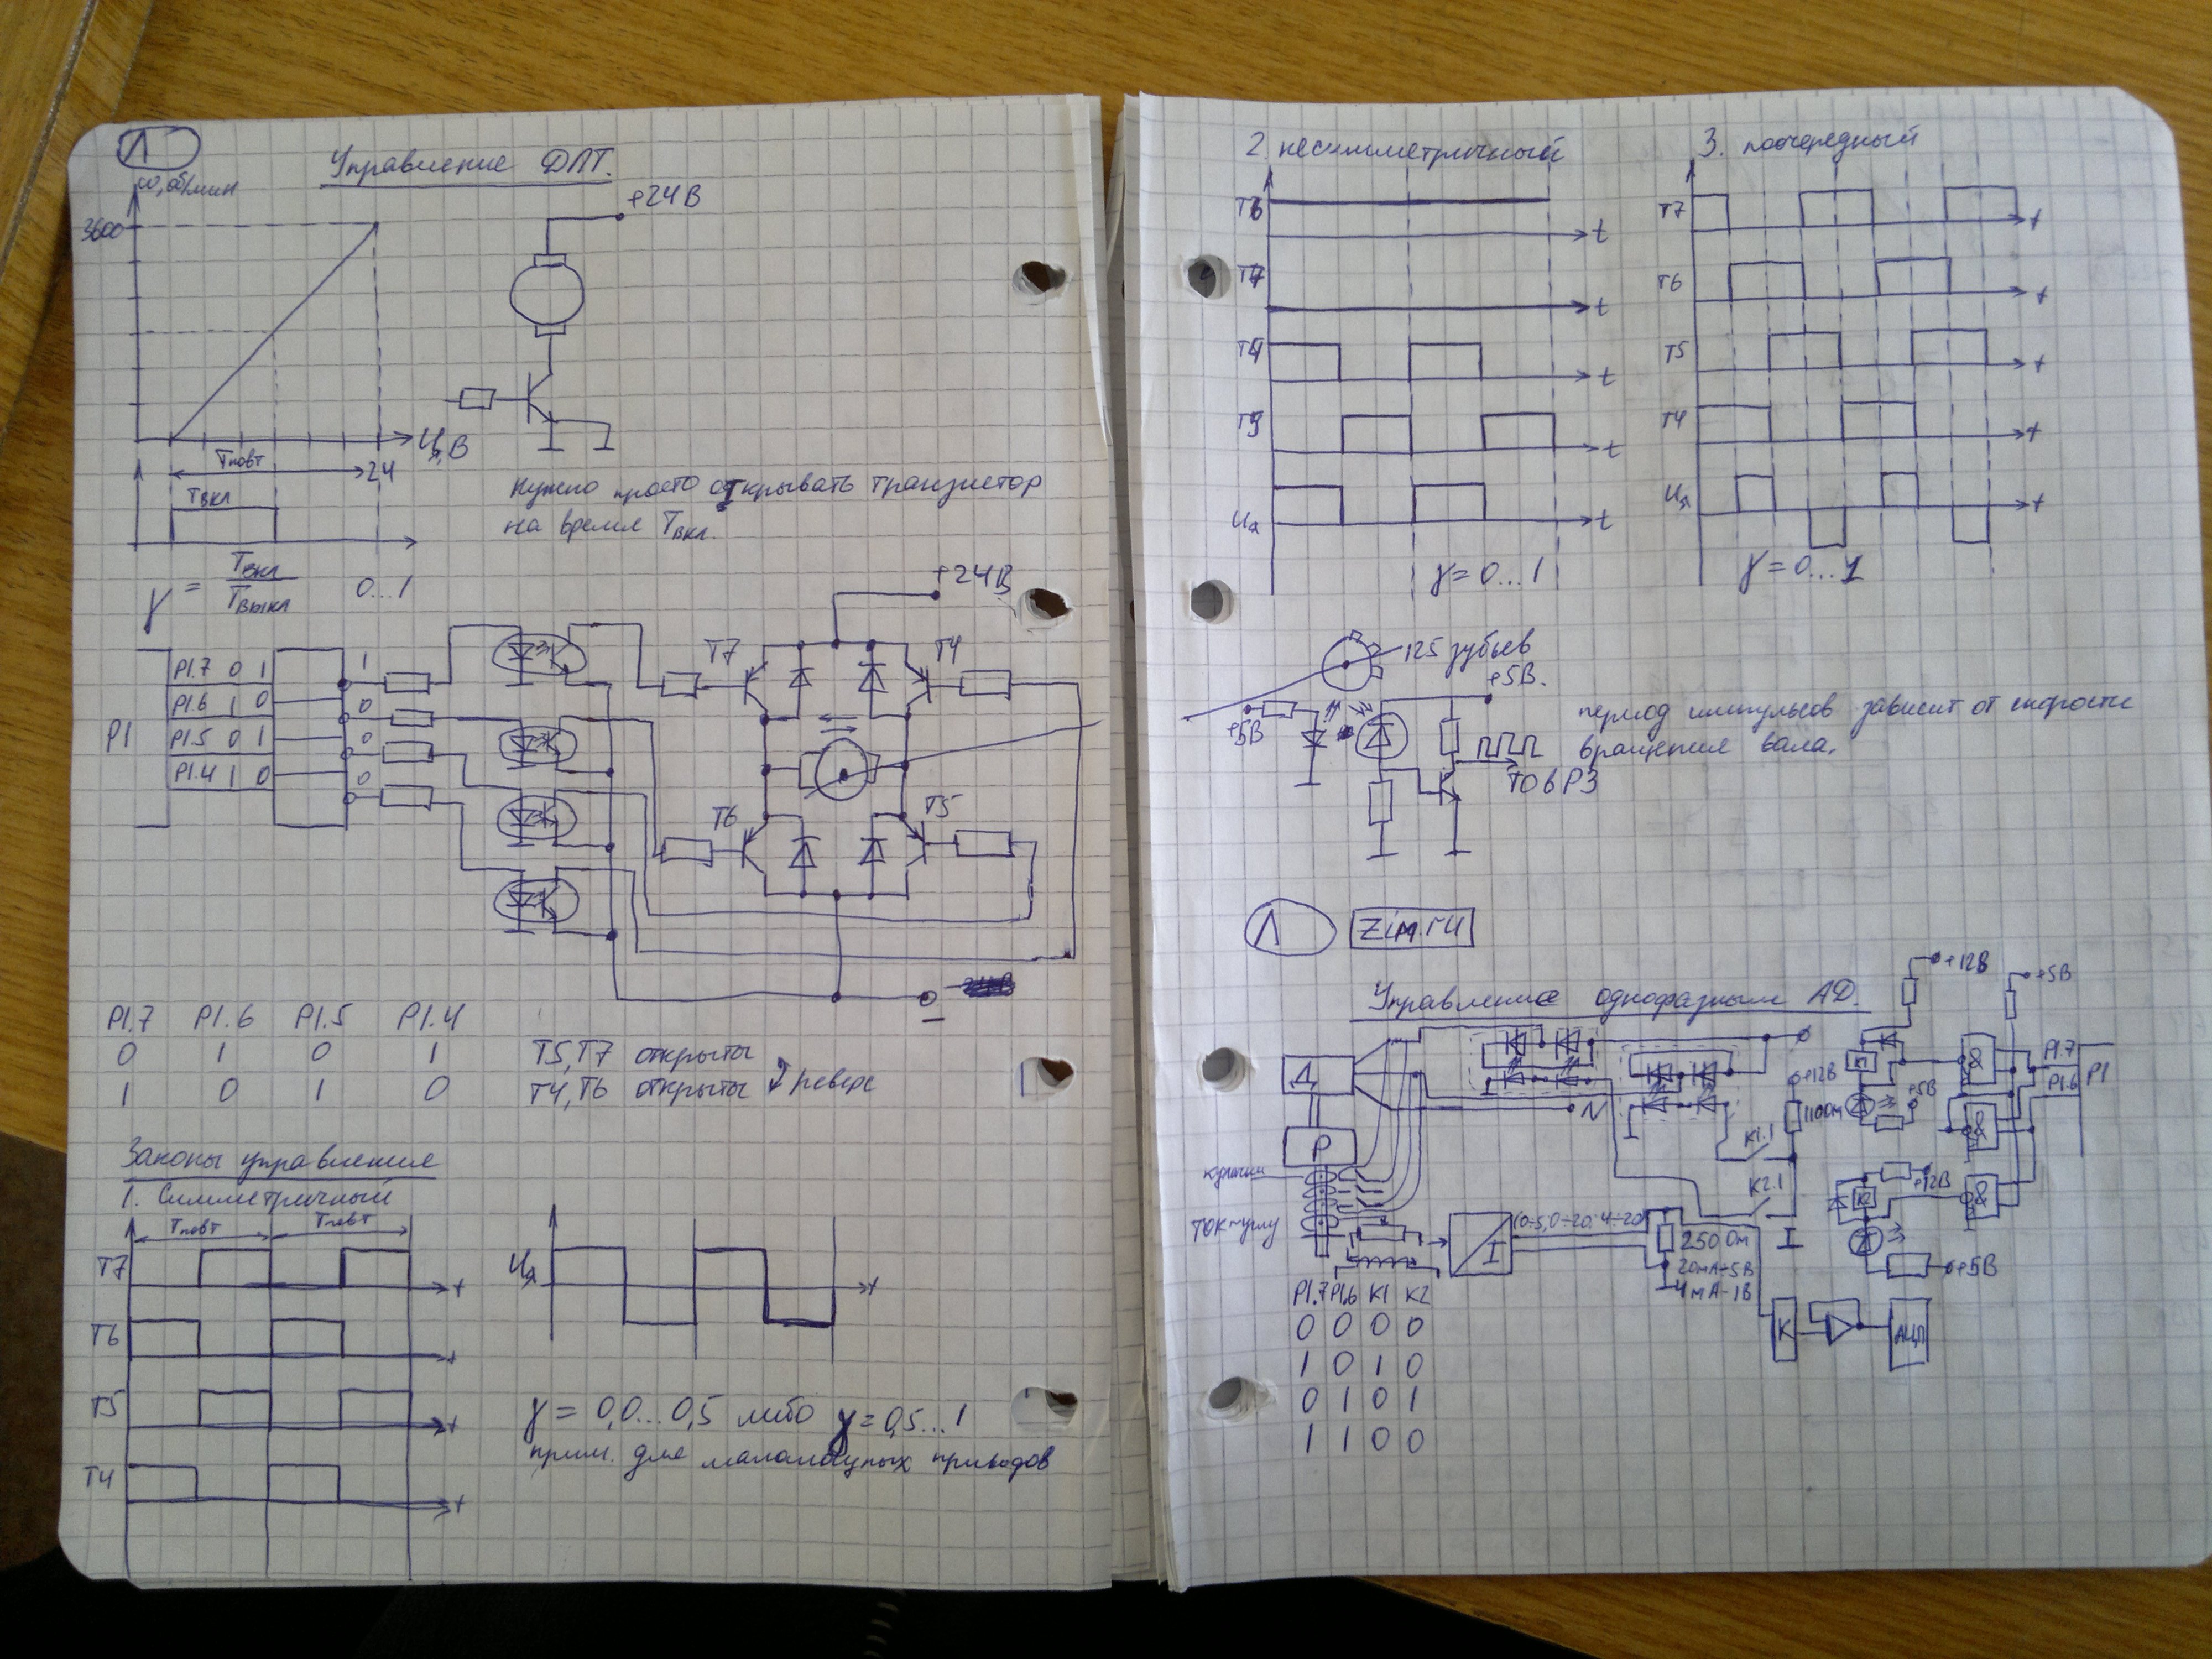 Л
Управление ДПТ.
ω, об/мин
3600
+24В
U, В
24
Tповт
Tвкл
Нужно просто открывать транзистор
на время Tвкл.
γ = Tвкл / Tвыкл 0...1
+24В
P1
P1.7 0 1
P1.6 1 0
P1.5 0 1
P1.4 1 0
1
0
0
0
T7
T4
T6
T5
P1.7 P1.6 P1.5 P1.4
0 1 0 1 T5, T7 открыты
1 0 1 0 T4, T6 открыты реверс
Законы управления
1. Симметричный
Tповт Tповт
T7 t
T6 t
T5 t
T4 t
Uя t
γ = 0,0...0,5 либо γ = 0,5...1
прим. для маломощных приводов
2. несимметричный
T6 t
T7 t
T4 t
T5 t
Uя t
γ = 0...1
3. поочередный
T7 t
T6 t
T5 t
T4 t
Uя t
γ = 0...1
125 зубьев
+5В.
+5В
период импульсов зависит от скорости
вращения вала.
T0 в P3
Л
Zim.ru
Управление однофазным АД.
+12В
+5В
Д
Р
N
+12В
110 Ом
K1.1
K2.1
K1
+5В
&
&
&
P1.7
P1.6
P1
K2
+12В
+5В
ток~углу
I
(0÷5, 0÷20, 4÷20)
250 Ом
20мА-5В
4мА-1В
К
АЦП
P1.7 P1.6 K1 K2
0 0 0 0
1 0 1 0
0 1 0 1
1 1 0 0